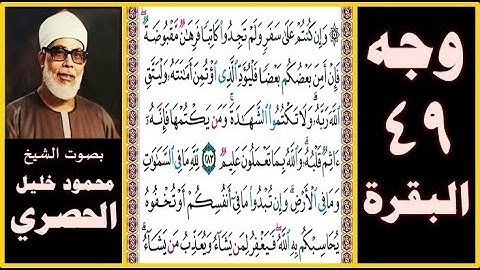 وجه
٤٩
البقرة
۞ وَإِن كُنتُمْ عَلَىٰ سَفَرٍ وَلَمْ تَجِدُوا۟ كَاتِبًا فَرِهَٰنٌ مَّقْبُوضَةٌ ۖ
فَإِنْ أَمِنَ بَعْضُكُم بَعْضًا فَلْيُؤَدِّ ٱلَّذِى ٱؤْتُمِنَ أَمَٰنَتَهُۥ وَلْيَتَّقِ
ٱللَّهَ رَبَّهُۥ ۗ وَلَا تَكْتُمُوا۟ ٱلشَّهَٰدَةَ ۚ وَمَن يَكْتُمْهَا فَإِنَّهُۥٓ
ءَاثِمٌ قَلْبُهُۥ ۗ وَٱللَّهُ بِمَا تَعْمَلُونَ عَلِيمٌ ٢٨٣ لِّلَّهِ مَا فِى ٱلسَّمَٰوَٰتِ
وَمَا فِى ٱلْأَرْضِ ۗ وَإِن تُبْدُوا۟ مَا فِىٓ أَنفُسِكُمْ أَوْ تُخْفُوهُ
يُحَاسِبْكُم بِهِ ٱللَّهُ ۖ فَيَغْفِرُ لِمَن يَشَآءُ وَيُعَذِّبُ مَن يَشَآءُ ۗ
بصوت الشيخ
محمود خليل
الحصري